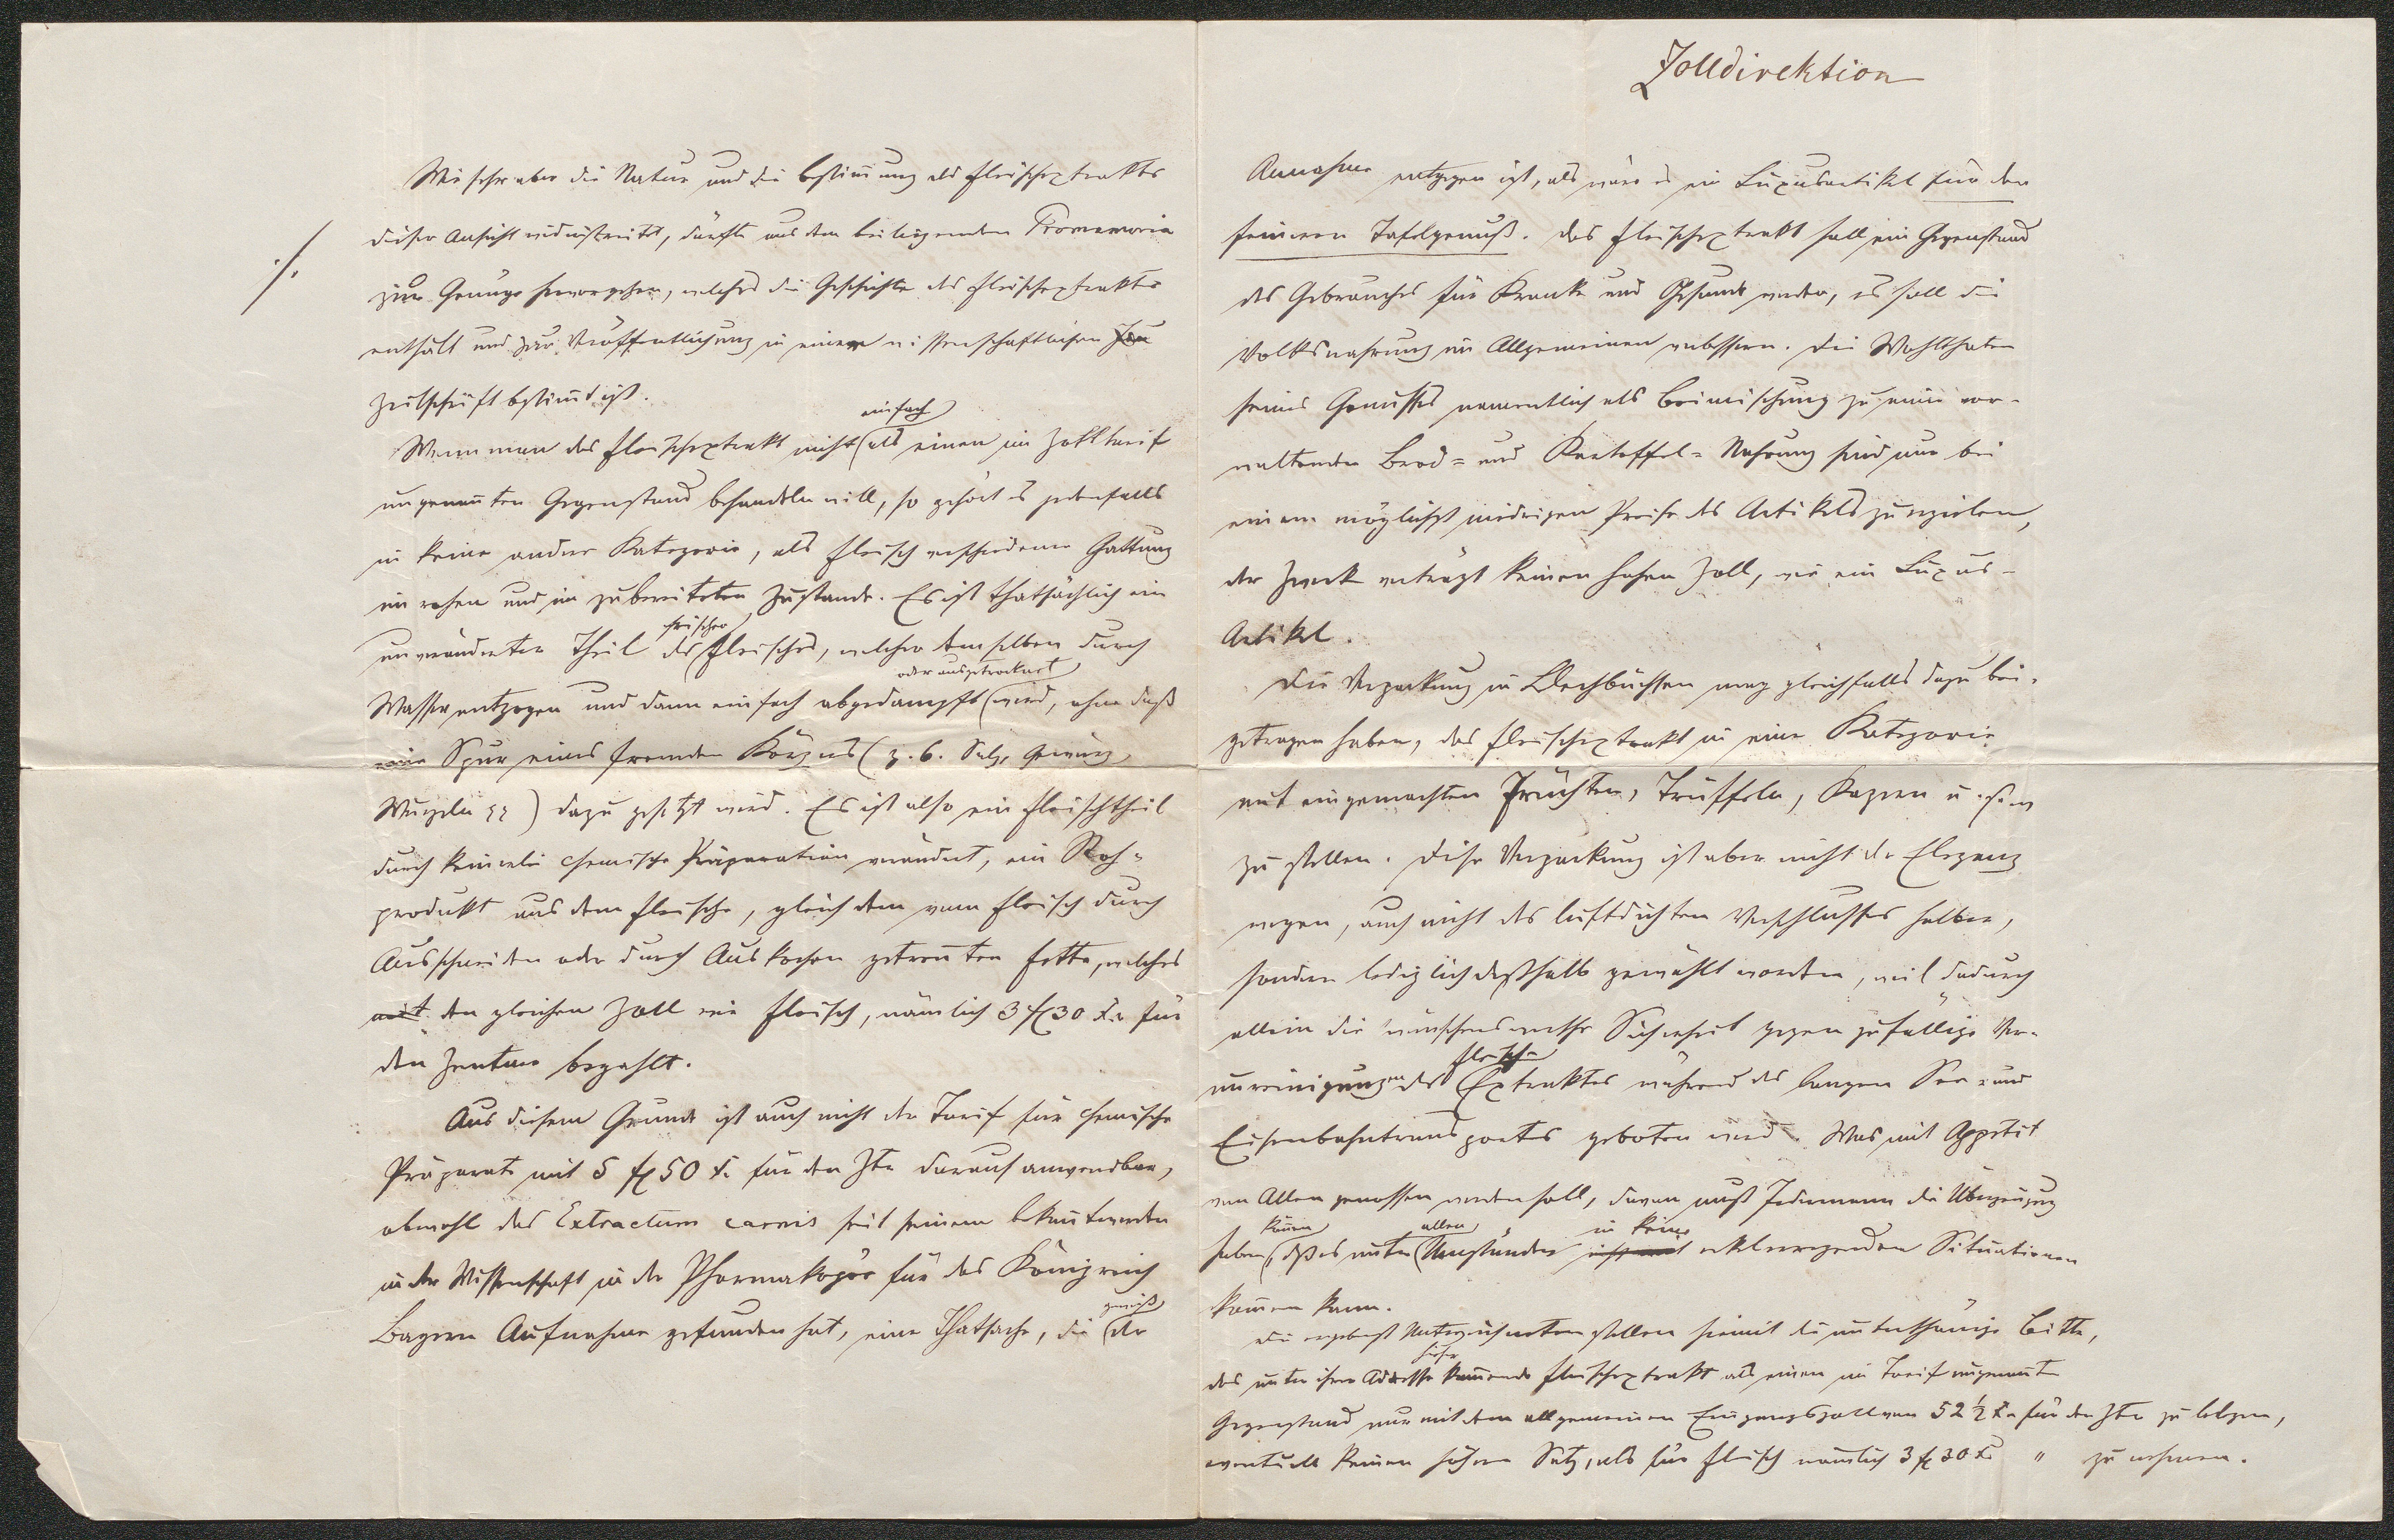 Wie sehr aber die Natur und die Bestim̅ung des Fleischextrakts
dieser Ansicht widerstreitet, dürfte aus dem beiliegenden Promemoria
./.
zur Genüge hervorgehen, welches die Geschichte des Fleischextraktes
enthält und zur Veröffentlichung in einer wissenschaftlichen
Zeitschrift bestim̅t ist.
einfach
Wenn man das Fleischextrakt nicht als einen im Zolltarif
ungenan̅ten Gegenstand behandeln will, so gehört es jedenfalls
in keine andere Kategorie, als Fleisch verschiedener Gattung
im rohen und im zubereiteten Zustande. Es ist thatsächlich ein
frischen
unveränderter Theil des Fleisches, welcher demselben durch
oder ausgetrocknet
Wasser entzogen und dann einfach abgedampft wird, ohne daß
eine Spur eines fremden Körpers (z. B. Salz, Gewürz,
Wurzeln ꝛꝛ) dazu gesetzt wird. Es ist also ein Fleischtheil
durch keinerlei chemische Präparation verändert, ein Roh-
produkt aus dem Fleische, gleich dem vom Fleisch durch
Ausschneiden oder durch Auskochen getren̅ten Fette, welches
mit den gleichen Zoll wie Fleisch, nämlich 3 f 30 xr für
den Zentner bezahlt.
Aus diesem Grunde ist auch nicht der Tarif für chemische
Präparate mit 5 f 50 x. für den Ztr darauf anwendbar,
obwohl das Extractum carnis seit seinem Bekan̅twerden
in der Wissenschaft in der Pharmakopöe für das Königreich
gewiß
Bayern Aufnahme gefunden hat, eine Thatsache, die der
Zolldirektion
Annahme entgegen ist, als wäre es ein Luxusartikel für den
feineren Tafelgenuß. Das Fleischextrakt soll ein Gegenstand
des Gebrauches für Kranke und Gesunde werden, es soll die
Volksnahrung im Allgemeinen verbessern. Die Wohlthaten
seines Genusses namentlich als Beimischung zu einer vor-
waltenden Brod- und Kartoffel-Nahrung sind nur bei
einem möglichst niedrigen Preise des Artikels zu erzielen,
der Zweck verträgt keinen hohen Zoll, wie ein Luxus-
Artikel.
Die Verpackung in Blechbüchsen mag gleichfalls dazu bei-
getragen haben, das Fleischextrakt in eine Kategorie
mit eingemachten Früchten, Trüffeln, Kapern u.
zu stellen. Diese Verpackung ist aber nicht der Eleganz
wegen, auch nicht des luftdichten Verschlusses halber,
sondern lediglich deßhalb gewählt worden, weil dadurch
allein die wünschenswerthe Sicherheit gegen zufällige Ver-
Fleisch-
unreinigungen des Extraktes während des langen See- und
Eisenbahntransportes geboten wird. Was mit Appetit
von Allen genossen werden soll, davon muß Jedermann die Überzeugung
kön̅en allen in keine
haben, daß es unter Umständen ekelerregenden Situationen
kom̅en kann.
Die ergebenst Unterzeichneten stellen hiemit die unterthänige Bitte,
hieher
das unter ihrer Adresse kom̅ende Fleischextrakt als einen im Tarif ungenan̅ten
Gegenstand nur mit dem allgemeinen Eingangszoll von 52 ½ xr für den Ztr zu belegen,
eventuell keinen höhern Satz, als für Fleisch nämlich 3 f 30 xr " zu nehmen.